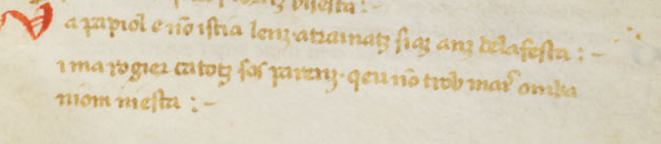 Va papiol e no istia lenz. atrainatz siaz anz delafesta :~
ima rogier catotz sos parenz. qeu no trob mais omba
niom niesta :~